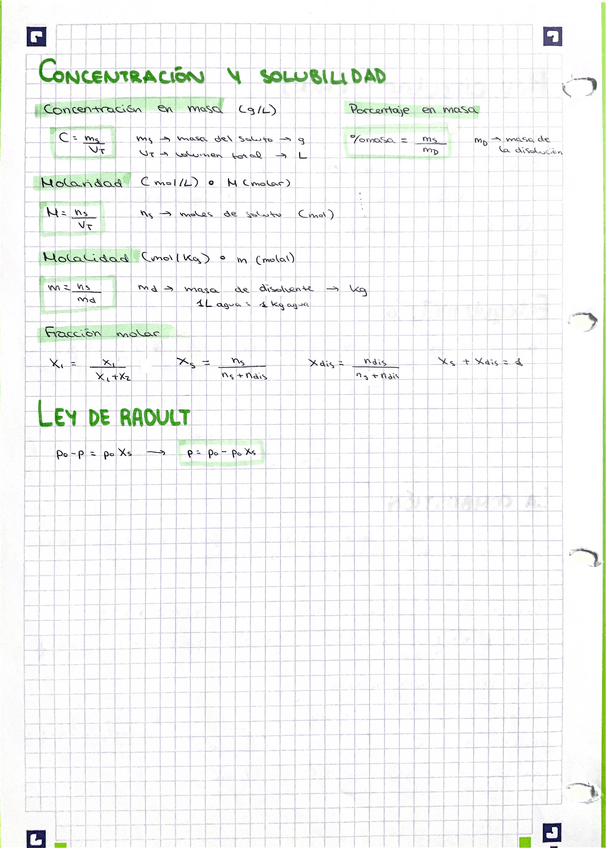 CONCENTRACIÓN Y SOLUBILIDAD
Concentración en masa (g/L)
Porcentaje en masa
C = ms/VT
ms → masa del soluto → g
VT → volumen total → L
%masa = ms/mD
mD → masa de
la disolución
Molaridad (mol/L) o M (molar)
M = ns/VT
ns → moles de soluto (mol)
Molalidad (mol/Kg) o m (molal)
m = ns/md
md → masa de disolvente → kg
1L agua = 1 kg agua
Fracción molar
X1 = X1/X1+X2
Xs = ns/ns+ndis
Xdis = ndis/ns+ndis
Xs + Xdis = 1
LEY DE RAOULT
po-p = po Xs → p = po - po Xs